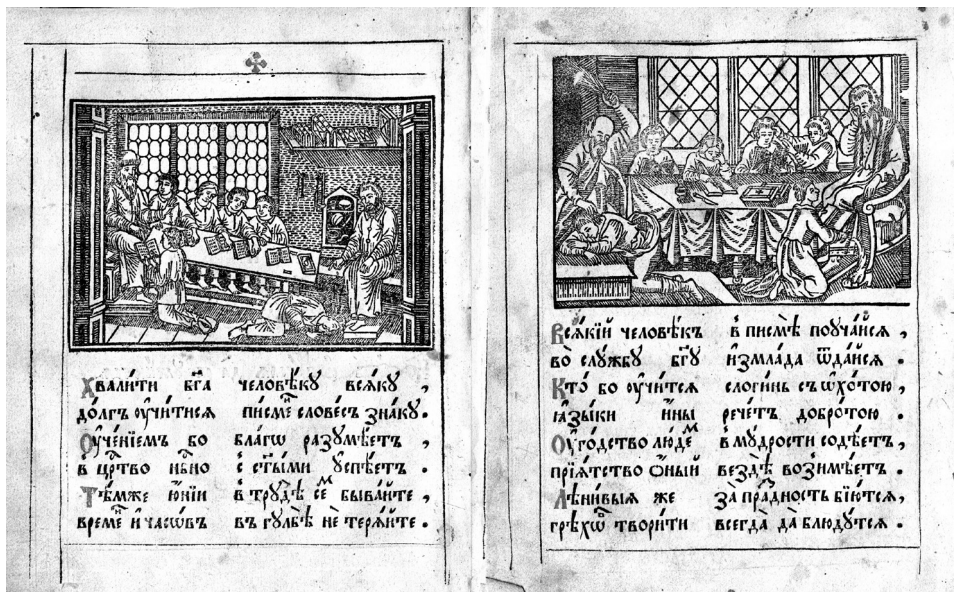 Хвали́ти бг҃а человѣ́ку вся́ку ,
до́лгъ ᲂу҆чи́тися пи́смен слове́съ зна́ку .
Оу҆че́нїемъ бо благѡ разꙋмѣ́етъ ,
в цр҃тво нб҃но с ст҃ы́ми ᲂу҆спѣ́етъ .
Тѣ́мже ю҆́нїи в трꙋдѣ́ сем быва́йте ,
време́н и҆ часѡ́въ въ гꙋлбѣ́ не теря́йте .
Вся́кїй человѣ́къ в писмѣ̀ поꙋча́йся ,
во̀ слꙋ́жбꙋ бг҃ꙋ и҆змла́да ѿда́йся .
Кто́ бо ᲂу҆́чится слоги́нь съ ѡ҆хо́тою ,
ꙗ҆зы́ки и҆́ны рече́тъ добро́тою .
Оу҆го́дство лю́дем в мꙋ́дрости содѣ́етъ ,
прїя́тство ѻ҆́ный вездѣ̀ вози́мѣетъ .
Лѣни́выя же за̀ пра́дность бїю́тся ,
грѣхѡ́в твори́ти всегда̀ да̀ блюдꙋ́тся .